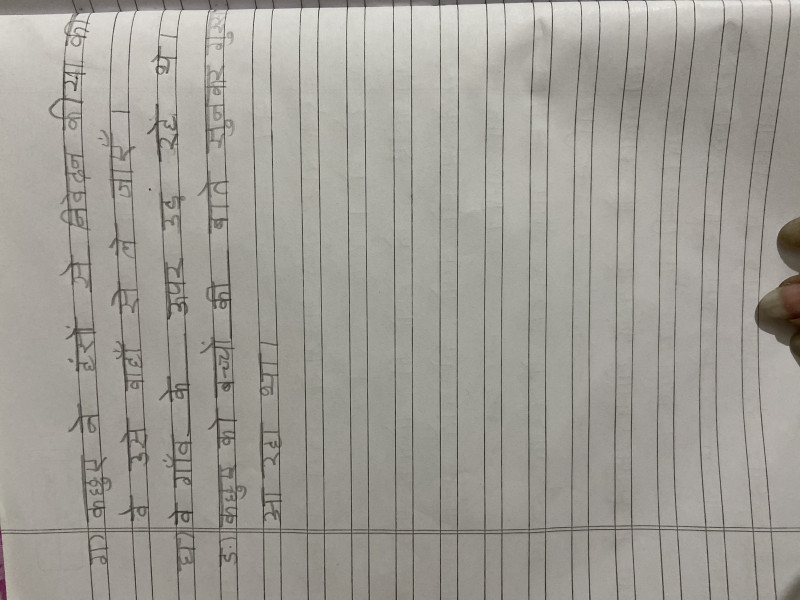 ग) कछुए ने हंसों से निवेदन कीया की
वे उसे वहाँ से ले जाएँ ।
घ) वे गाँव के ऊपर उड़ रहे थे ।
ङ) कछुए को बच्चों की बाते सुनकर
आ रहा था ।